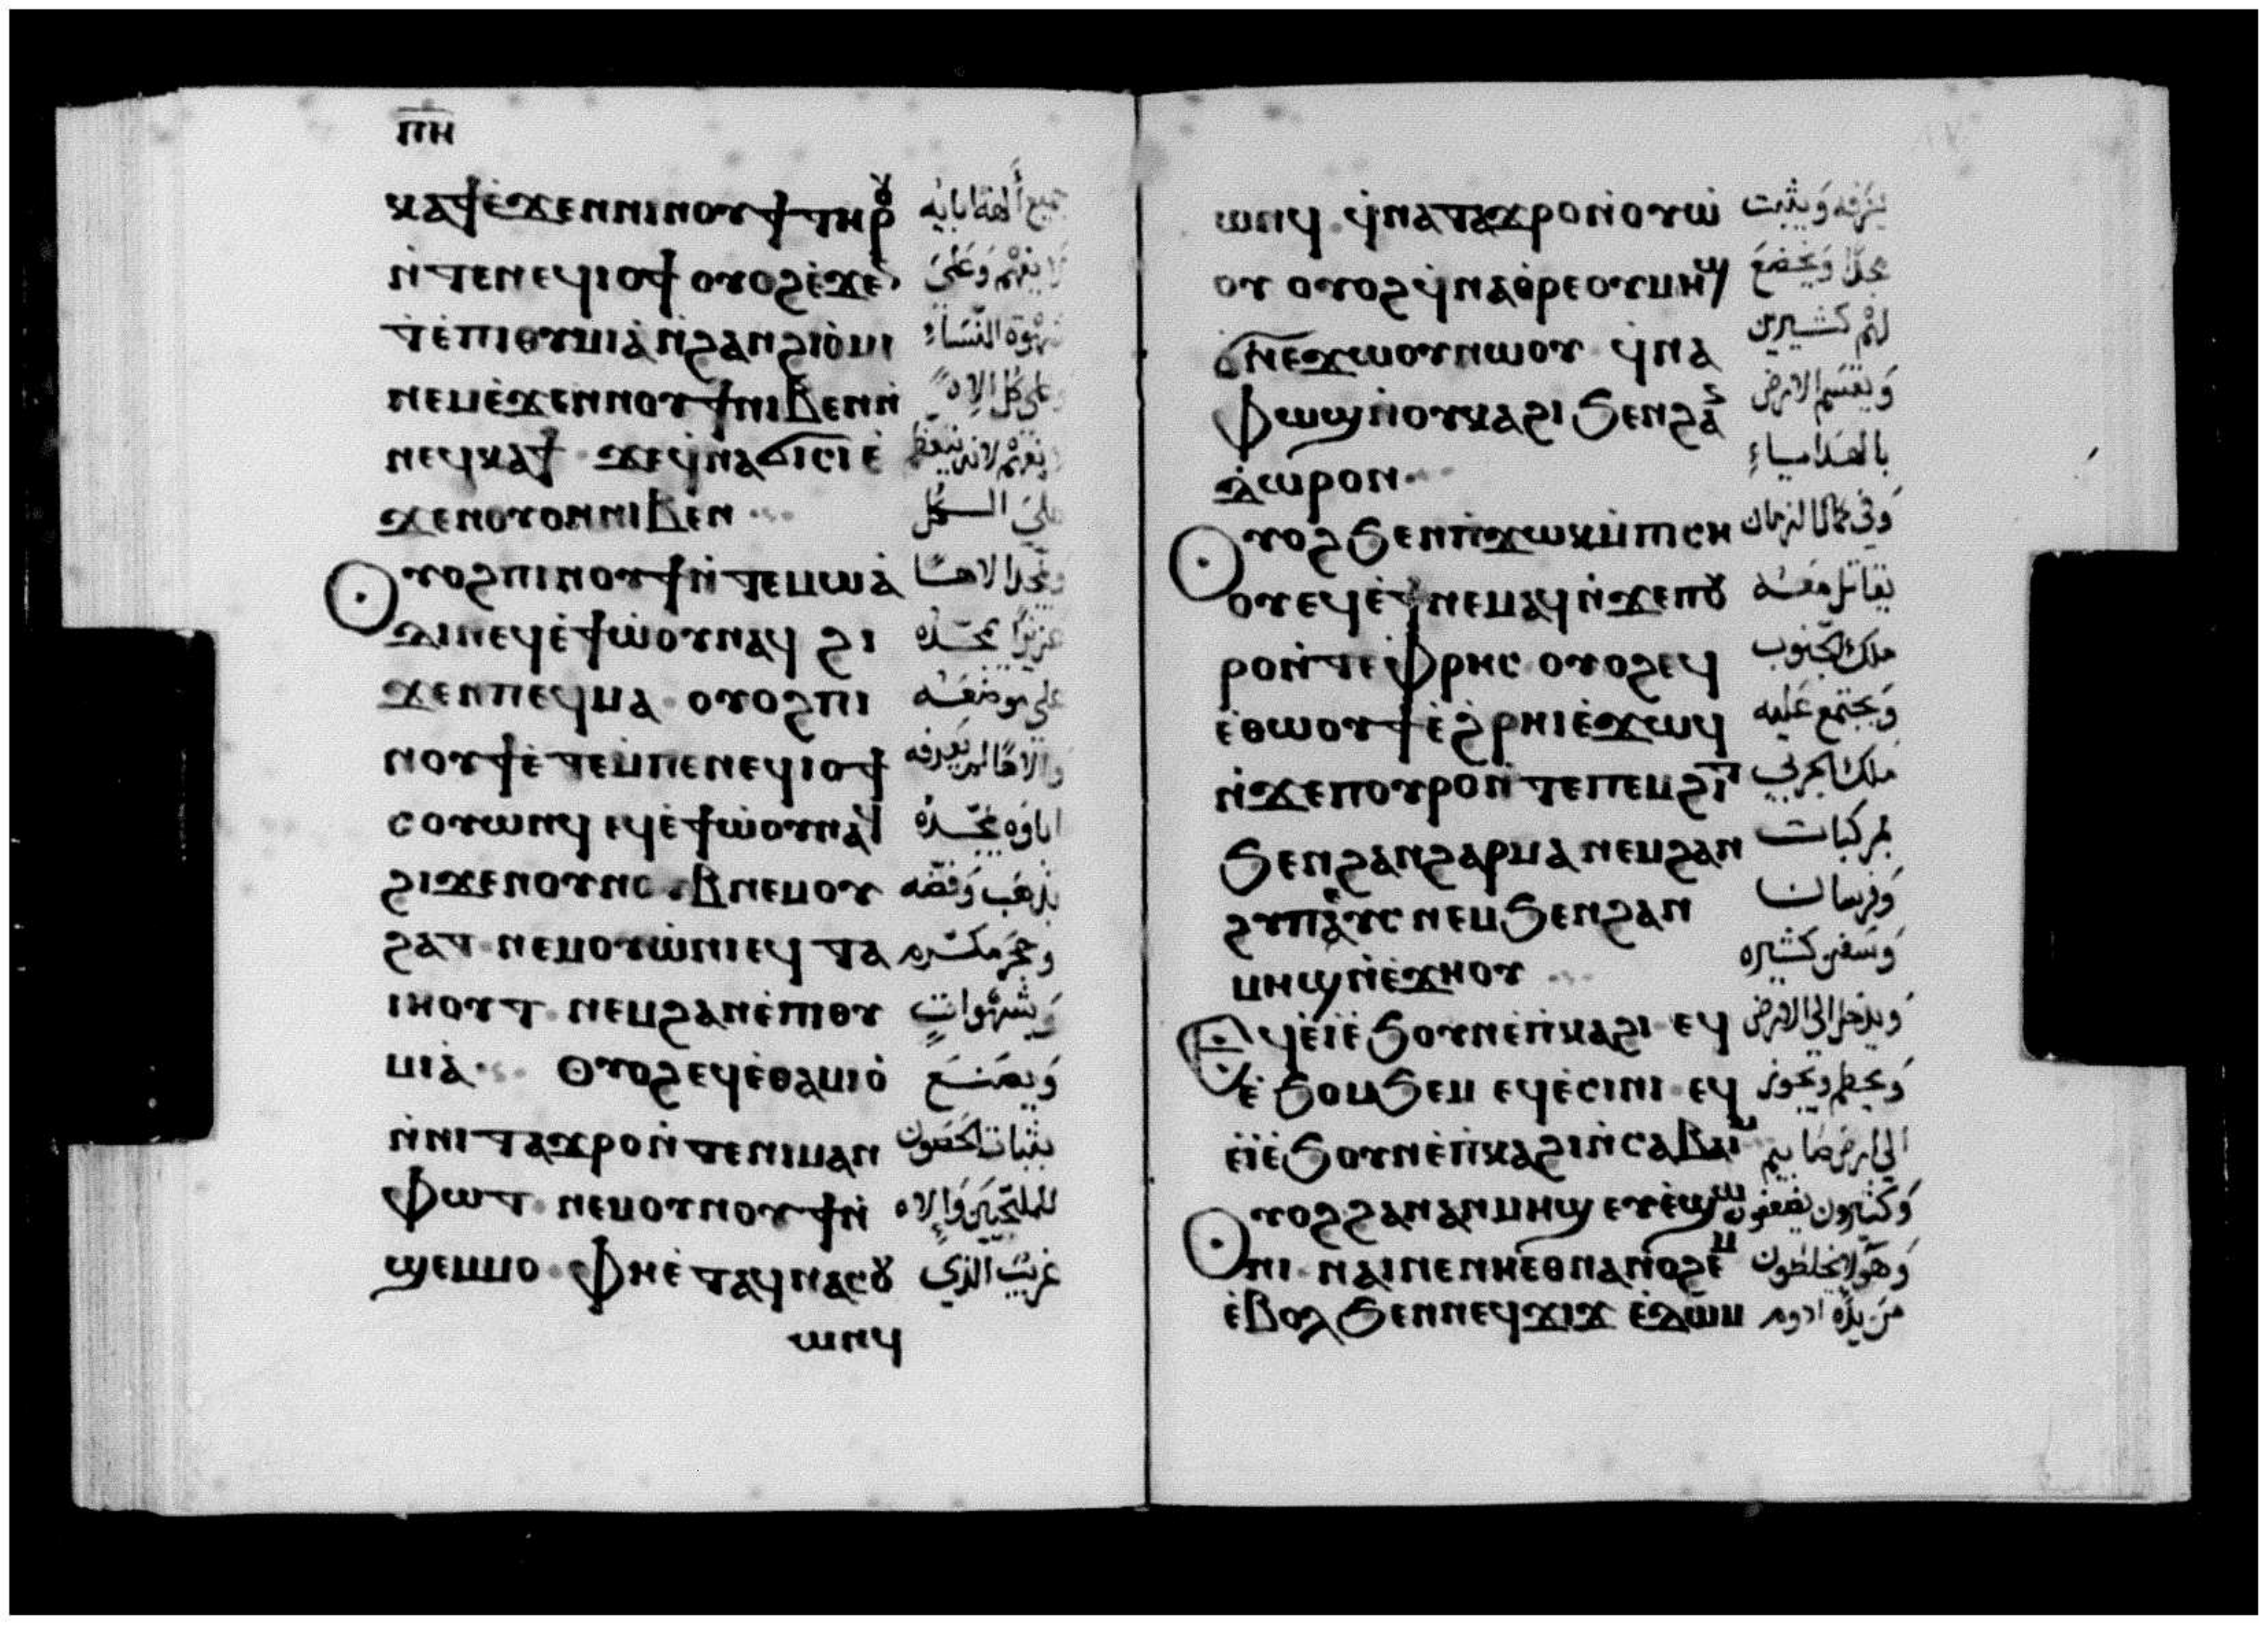 ⲡⲏ
ⲕⲁϯⲉ̀ϫⲉⲛⲛⲓⲛⲟⲩϯⲧⲏⲣⲟⲩ جميع ألهة ابايه
ⲛ̀ⲧⲉⲛⲉϥⲓⲟϯ ⲟⲩⲟϩⲉ̀ϫⲉ لا يفهم وَعَلىَ
ⲧⲉ̀ⲡⲓⲑⲩⲙⲓⲁ̀ⲛ̀ϩⲁⲛϩⲓⲟ̀ⲙⲓ شهوة النّساء
ⲛⲉⲙⲉ̀ϫⲉⲛⲛⲟⲩϯⲛⲓⲃⲉⲛⲛ̀ وعلى كل الاه
ⲛⲉϥⲕⲁϯ ϫⲉϥ̀ⲛⲁϭⲓⲥⲓⲉ̀ يفهم لانه يتعظم
ϫⲉⲛⲟⲩⲟⲛⲛⲓⲃⲉⲛ على الــكل
ⲟⲩⲟϩⲡⲓⲛⲟⲩϯⲛ̀ⲧⲉⲙⲱⲁ̀ ويمجد الاهــًا
ϫⲓⲛⲉϥⲉ̀ϯⲱ̀ⲟⲩⲛⲁϥ ϩⲓ عزيزًا يمجّده
ϫⲉⲛⲡⲉϥⲙⲁ ⲟⲩⲟϩⲡⲓ على موضعــه
ⲛⲟⲩϯⲉ̀ⲧⲉⲙ̀ⲡⲉⲛⲉϥⲓⲟϯ والاهًا لم يعرفه
ⲥⲟⲩⲱⲛϥ ⲉϥⲉ̀ϯⲱ̀ⲟⲩⲛⲁϥ اباوه يمجّده
ϩⲓϫⲉⲛⲟⲩⲛⲟⲩⲃⲛⲉⲙⲟⲩ بذهَب وَفضّه
ϩⲁⲧ ⲛⲉⲙⲟⲩⲱ̀ⲛⲓⲉϥ ⲧⲁ وحجَر مكــرم
ⲓⲏⲟⲩⲧ ⲛⲉⲙϩⲁⲛⲉ̀ⲡⲓⲑⲩ وَشهْواتٍ
ⲙⲓⲁ̀ ⲟⲩⲟϩⲉϥⲉ̀ⲑⲁⲙⲓⲟ̀ وَيصَنــعَ
ⲛ̀ⲛⲓⲧⲁϫⲣⲟⲛ̀ⲧⲉⲛⲓⲙⲁⲛ بثبات الحصون
ⲫⲱⲧ ⲛⲉⲙⲟⲩⲛⲟⲩϯⲛ̀ للملتجيَن وَإلاه
ϣⲉⲙⲙⲟ ⲫⲏⲉ̀ⲧⲁϥⲛⲁⲥⲟⲩ غريبٌ الذي
ⲱⲛϥ
ⲱⲛϥ ϥ̀ⲛⲁⲧⲁϫⲣⲟⲛ̀ⲟⲩⲱ̀ يعَرفه وَيثبت
ⲟⲩ ⲟⲩⲟϩϥ̀ⲛⲁⲑ̀ⲣⲉⲟⲩⲙⲏϣ مجدًا وَيخضعَ
ϭ̀ⲛⲉϫⲱⲟⲩⲛⲱⲟⲩ ϥ̀ⲛⲁ لهم كثـيرين
ⲫⲱϣⲛ̀ⲟⲩⲕⲁϩⲓ ϧⲉⲛϩⲁⲛ وَيقسَم الارض
ⲇⲱⲣⲟⲛ بالهدايــاءِ
ⲟⲩⲟϩ ϧⲉⲛⲡ̀ϫⲱⲕⲙ̀ⲡⲓⲥⲏ وَفي كمال الزمان
ⲟⲩⲉϥⲉ̀ϯⲛⲉⲙⲁϥⲛ̀ϫⲉⲡⲟⲩ يقاتل معــه
ⲣⲟⲛ̀ⲧⲉⲫ̀ⲣⲏⲥ ⲟⲩⲟϩⲉϥ ملك الجنوب
ⲉ̀ⲑⲱⲟⲩϯⲉ̀ϩ̀ⲣⲏⲓⲉ̀ϫⲱϥ وَيجتمع عَليه
ⲛ̀ϫⲉⲡⲟⲩⲣⲟⲛ̀ⲧⲉⲡⲉⲙϩⲓⲧ ملك البحري
ϧⲉⲛϩⲁⲛϩⲁⲣⲙⲁ ⲛⲉⲙϩⲁⲛ بمركبات
ϩⲩⲡⲡⲉⲩⲥ ⲛⲉⲙϧⲉⲛϩⲁⲛ وَفرسان
ⲙⲏϣⲛ̀ⲉ̀ϫⲏⲟⲩ وَسَفن كثيره
ⲉϥⲉ̀ⲓ̀ⲉ̀ϧⲟⲩⲛⲉ̀ⲡ̀ⲕⲁϩⲓ ⲉϥ وَيدخل الي الارض
ⲉ̀ϧⲟⲙϧⲉⲙ ⲉϥⲉ̀ⲥⲓⲛⲓ ⲉϥ وَيحطم ويجوز
ⲉ̀ⲓ̀ⲉ̀ϧⲟⲩⲛⲉ̀ⲡ̀ⲕⲁϩⲓⲛ̀ⲥⲁⲃⲁⲓⲙ الي ارض صابيم
ⲟⲩⲟϩϩⲁⲛⲁⲛⲙⲏϣ ⲉⲩⲉ̀ϣⲱ وَكثيرون يضعفون
ⲛⲓ ⲛⲁⲓⲛⲉⲛⲏⲉⲑⲛⲁⲛⲟϩⲉⲙ وَهَولا يخلطون
ⲉ̀ⲃⲟⲗ ϧⲉⲛⲛⲉϥϫⲓϫ ⲉ̀ⲇⲱⲙ من يدِّه ادوم